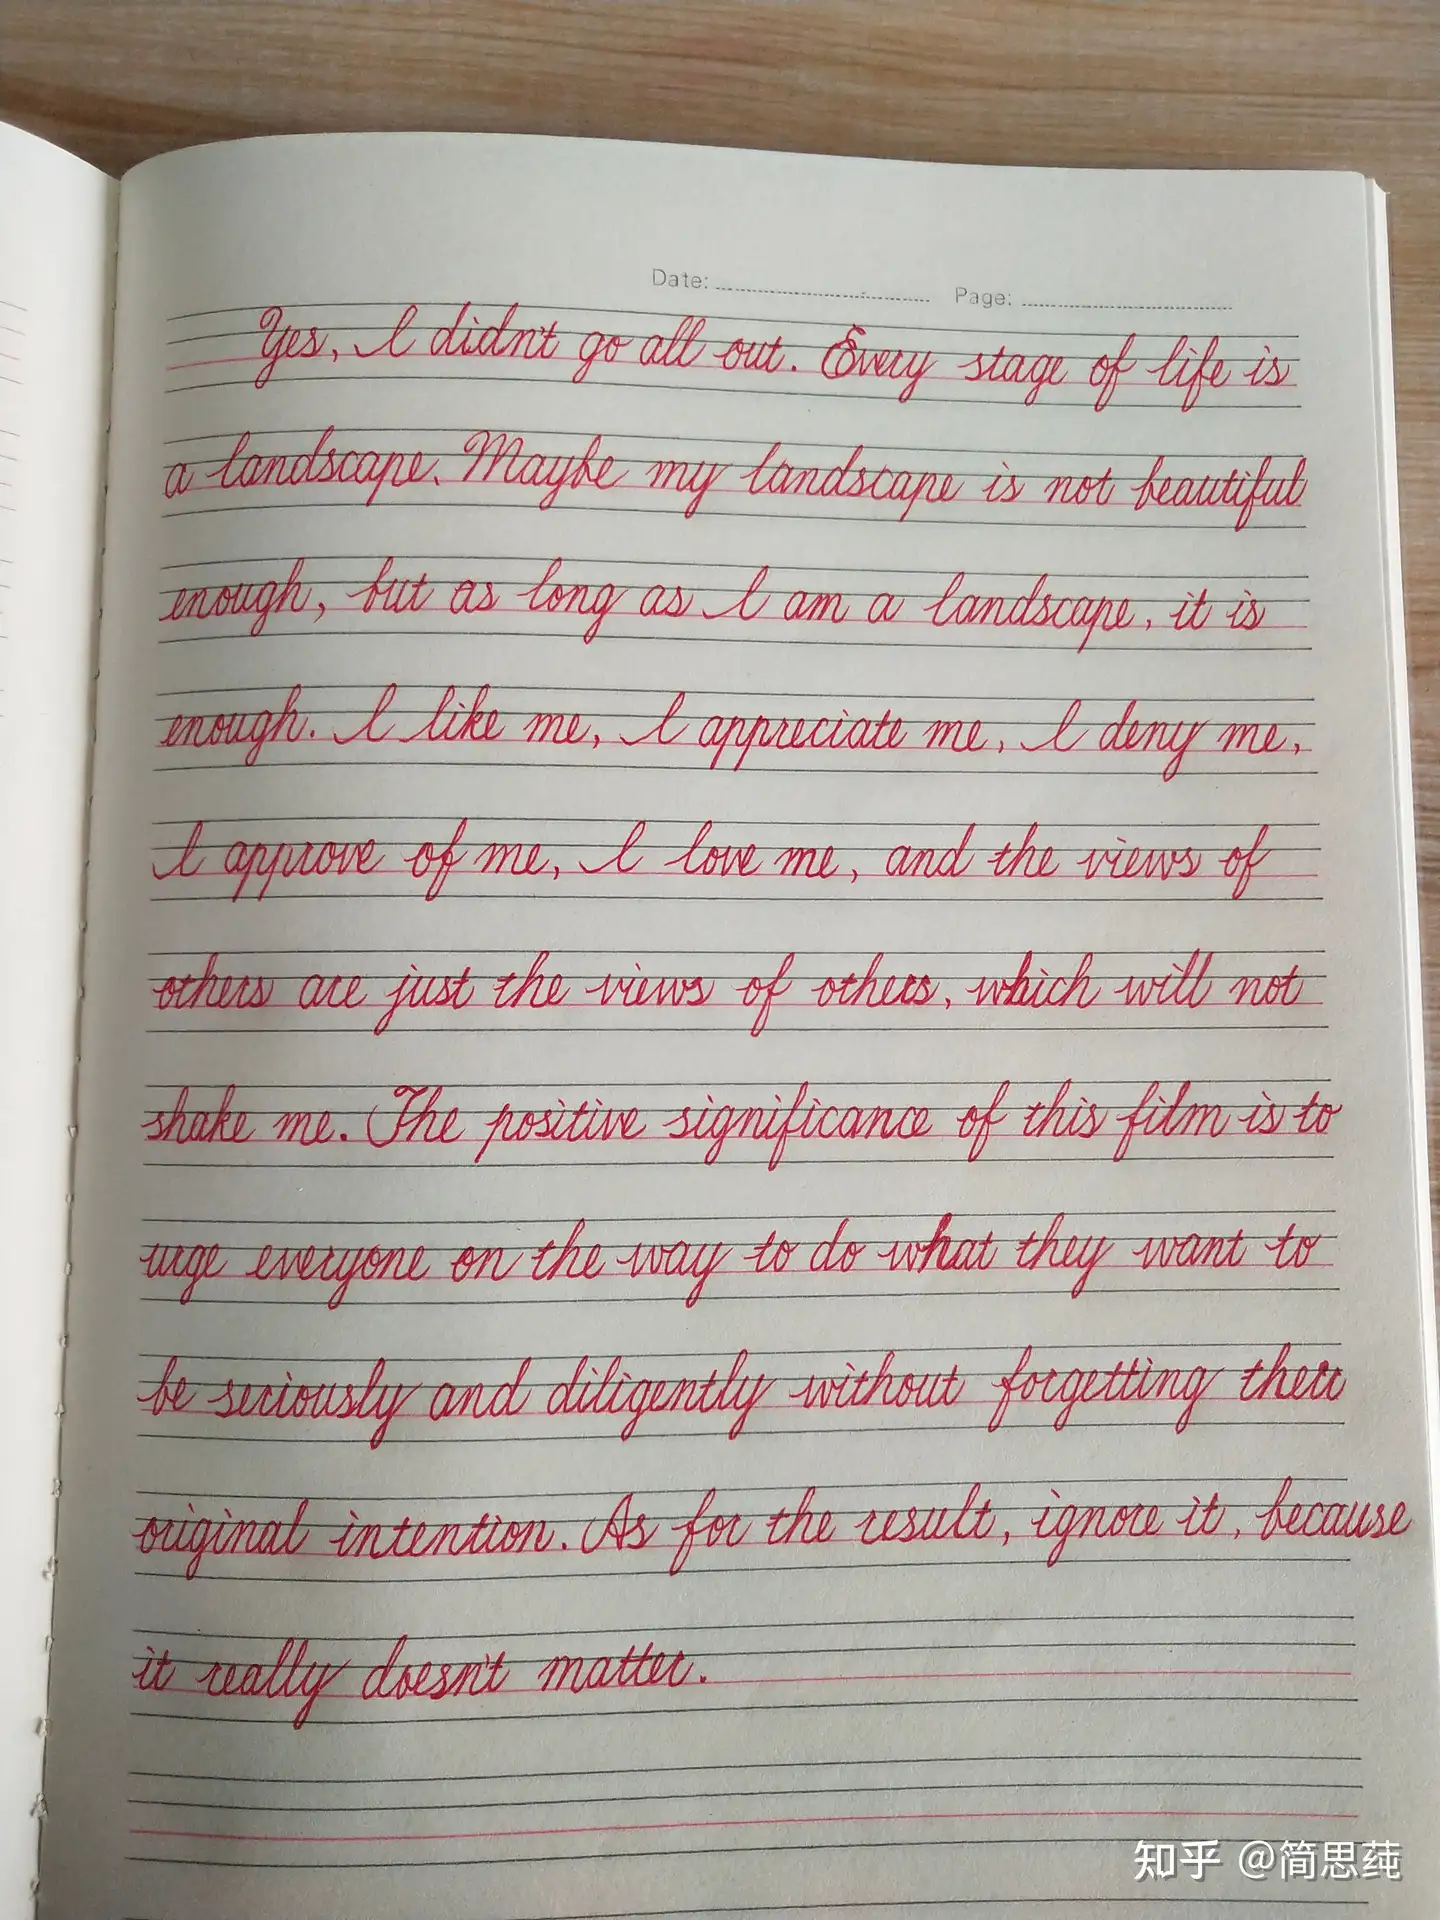 Date: Page:
Yes, I didn't go all out. Every stage of life is
a landscape. Maybe my landscape is not beautiful
enough, but as long as I am a landscape, it is
enough. I like me, I appreciate me, I deny me,
I approve of me, I love me, and the views of
others are just the views of others, which will not
shake me. The positive significance of this film is to
urge everyone on the way to do what they want to
be seriously and diligently without forgetting their
original intention. As for the result, ignore it, because
it really doesn't matter.
知乎 @简思莼